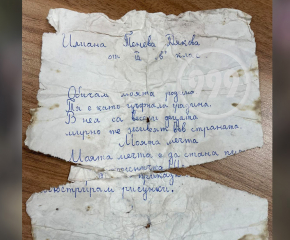 Илиана Тенева Някова
от II в кло
Обичам моята родина
Тя е като цъфнала градина.
В нея са весели децата
мирно те живеят във страната.
Моята мечта
Моята мечта е да стана пи
илюстрирам рисунки.